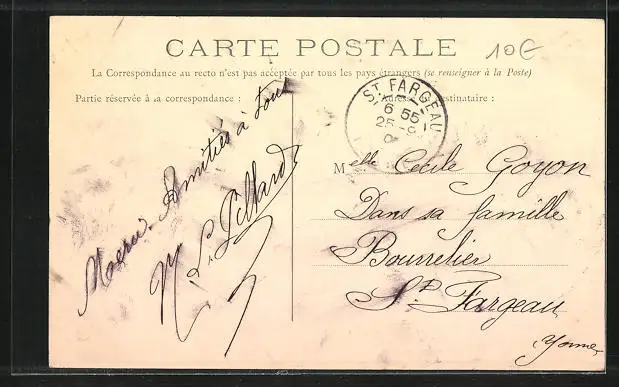 CARTE POSTALE
10€
La Correspondance au recto n'est pas acceptée par tous les pays étrangers (se renseigner à la Poste)
Partie réservée à la correspondance :
Adresse destinataire :
ST FARGEAU
6 55
25 -9
Amitiés à tous
Melle Cécile Goyon
Dans sa famille
Bourrelier
St Fargeau
Yonne